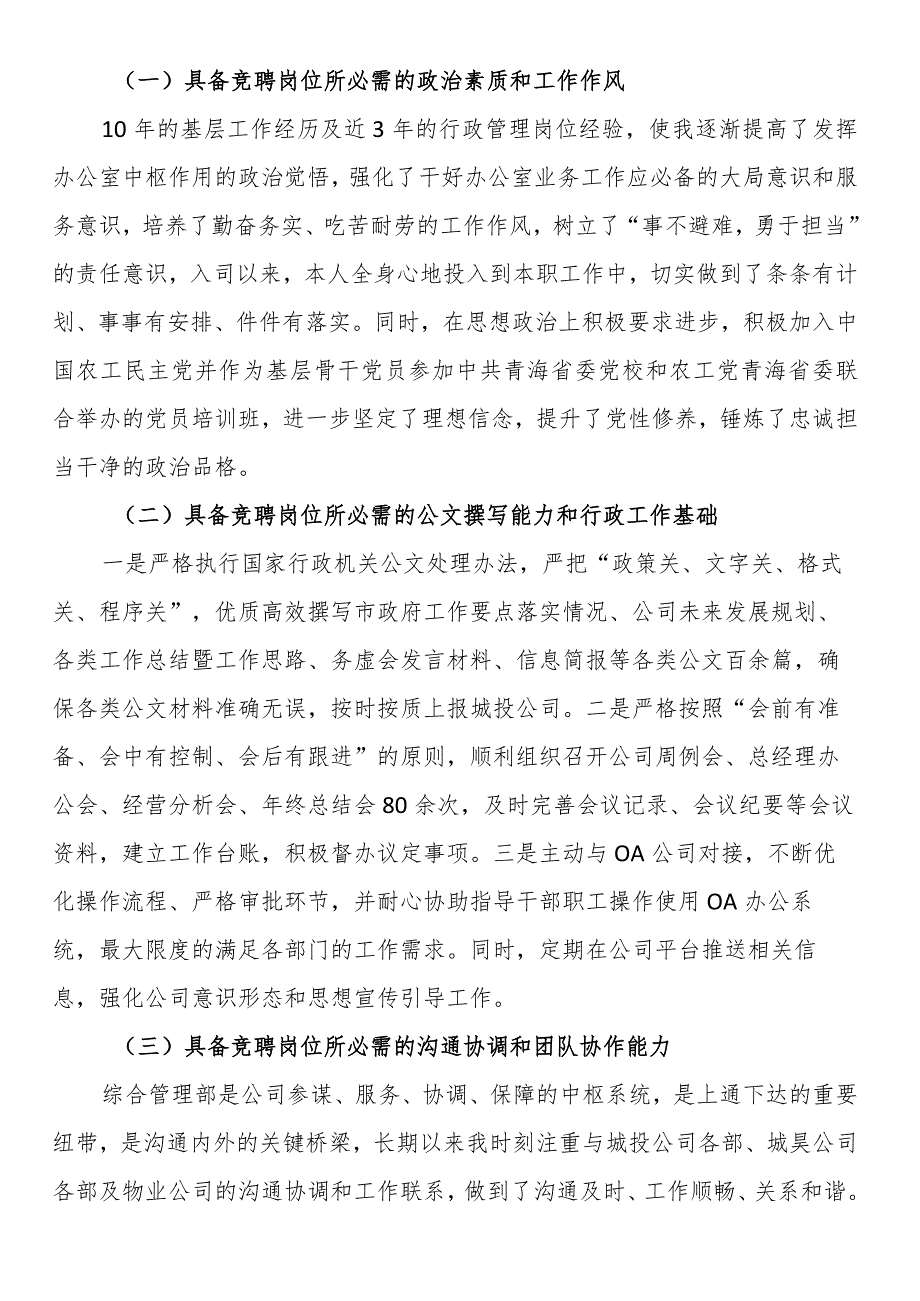 （一）具备竞聘岗位所必需的政治素质和工作作风
10 年的基层工作经历及近 3 年的行政管理岗位经验，使我逐渐提高了发挥
办公室中枢作用的政治觉悟，强化了干好办公室业务工作应必备的大局意识和服
务意识，培养了勤奋务实、吃苦耐劳的工作作风，树立了“事不避难，勇于担当”
的责任意识，入司以来，本人全身心地投入到本职工作中，切实做到了条条有计
划、事事有安排、件件有落实。同时，在思想政治上积极要求进步，积极加入中
国农工民主党并作为基层骨干党员参加中共青海省委党校和农工党青海省委联
合举办的党员培训班，进一步坚定了理想信念，提升了党性修养，锤炼了忠诚担
当干净的政治品格。
（二）具备竞聘岗位所必需的公文撰写能力和行政工作基础
一是严格执行国家行政机关公文处理办法，严把“政策关、文字关、格式
关、程序关”，优质高效撰写市政府工作要点落实情况、公司未来发展规划、
各类工作总结暨工作思路、务虚会发言材料、信息简报等各类公文百余篇，确
保各类公文材料准确无误，按时按质上报城投公司。二是严格按照“会前有准
备、会中有控制、会后有跟进”的原则，顺利组织召开公司周例会、总经理办
公会、经营分析会、年终总结会 80 余次，及时完善会议记录、会议纪要等会议
资料，建立工作台账，积极督办议定事项。三是主动与 OA 公司对接，不断优
化操作流程、严格审批环节，并耐心协助指导干部职工操作使用 OA 办公系
统，最大限度的满足各部门的工作需求。同时，定期在公司平台推送相关信
息，强化公司意识形态和思想宣传引导工作。
（三）具备竞聘岗位所必需的沟通协调和团队协作能力
综合管理部是公司参谋、服务、协调、保障的中枢系统，是上通下达的重要
纽带，是沟通内外的关键桥梁，长期以来我时刻注重与城投公司各部、城昊公司
各部及物业公司的沟通协调和工作联系，做到了沟通及时、工作顺畅、关系和谐。